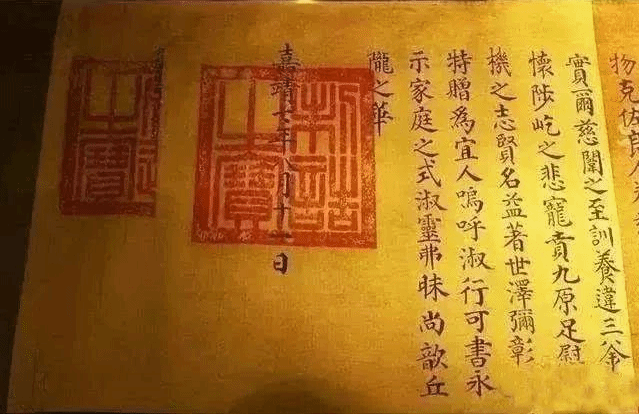 物克佐
實爾慈闈之至訓養違三釜
懷陟屺之悲寵賁九原足慰
機之志賢名益著世澤彌彰
特贈為宜人嗚呼淑行可書永
示家庭之式淑靈弗昧尚歆丘
隴之華
嘉靖七年八月十一日
制誥
之寶
之寶